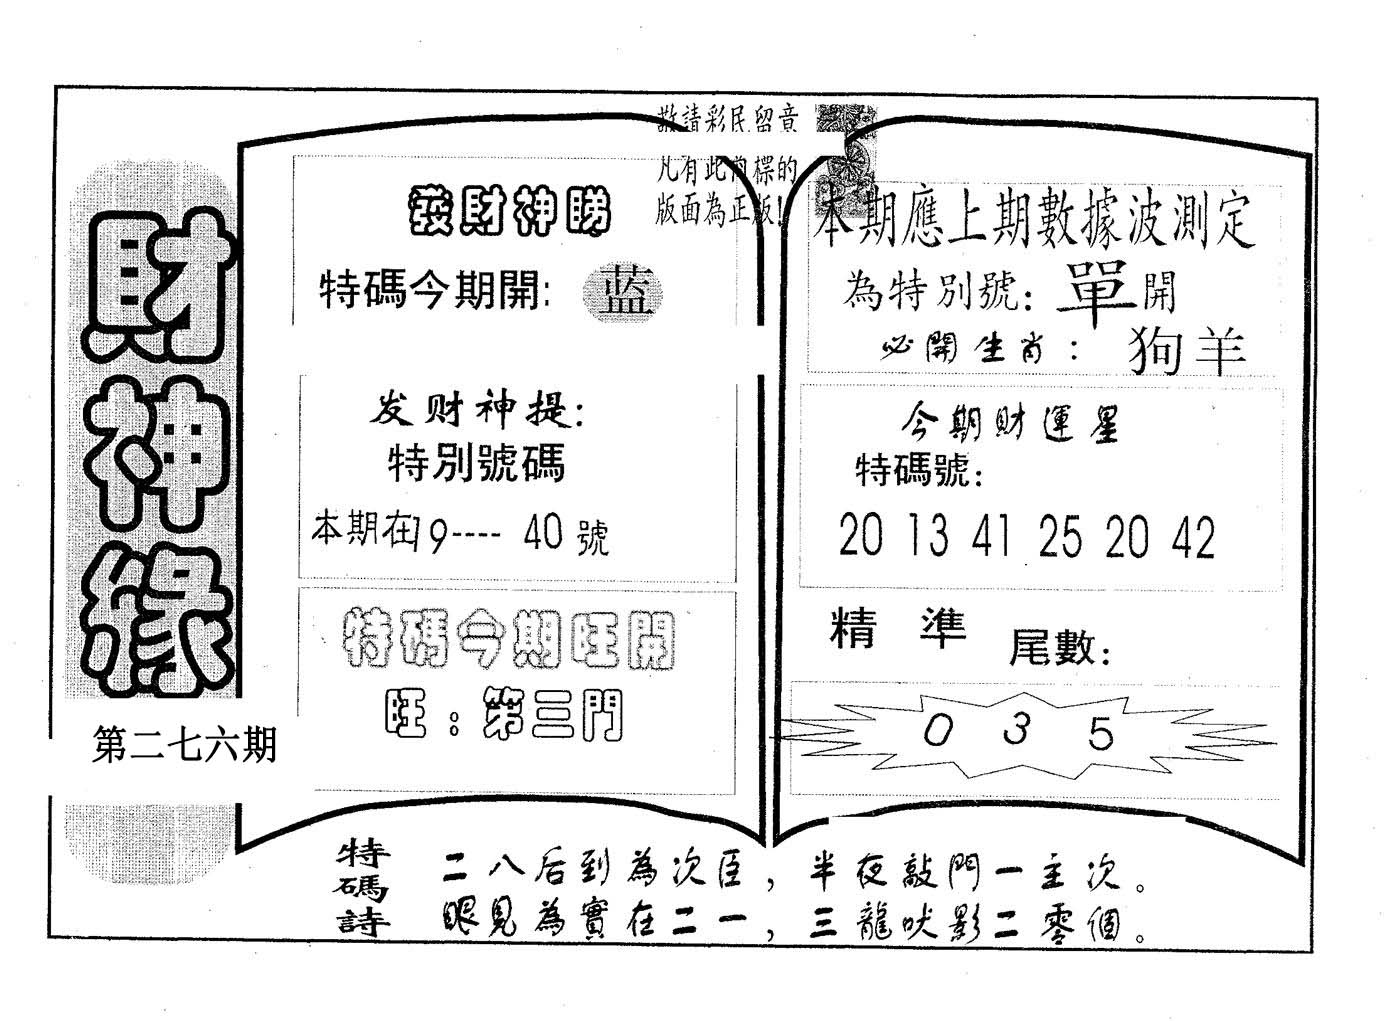 財神緣
第二七六期
敬請彩民留意
凡有此商標的
版面為正版!
發財神睇
特碼今期開: 蓝
发财神提:
特別號碼
本期在19---- 40號
特碼今期旺開
旺:第三門
本期應上期數據波測定
為特別號:單開
必開生肖: 狗羊
今期財運星
特碼號:
20 13 41 25 20 42
精準 尾數:
0 3 5
特碼詩
二八后到為次臣，半夜敲門一主次。
眼見為實在二一，三龍吠影二零個。